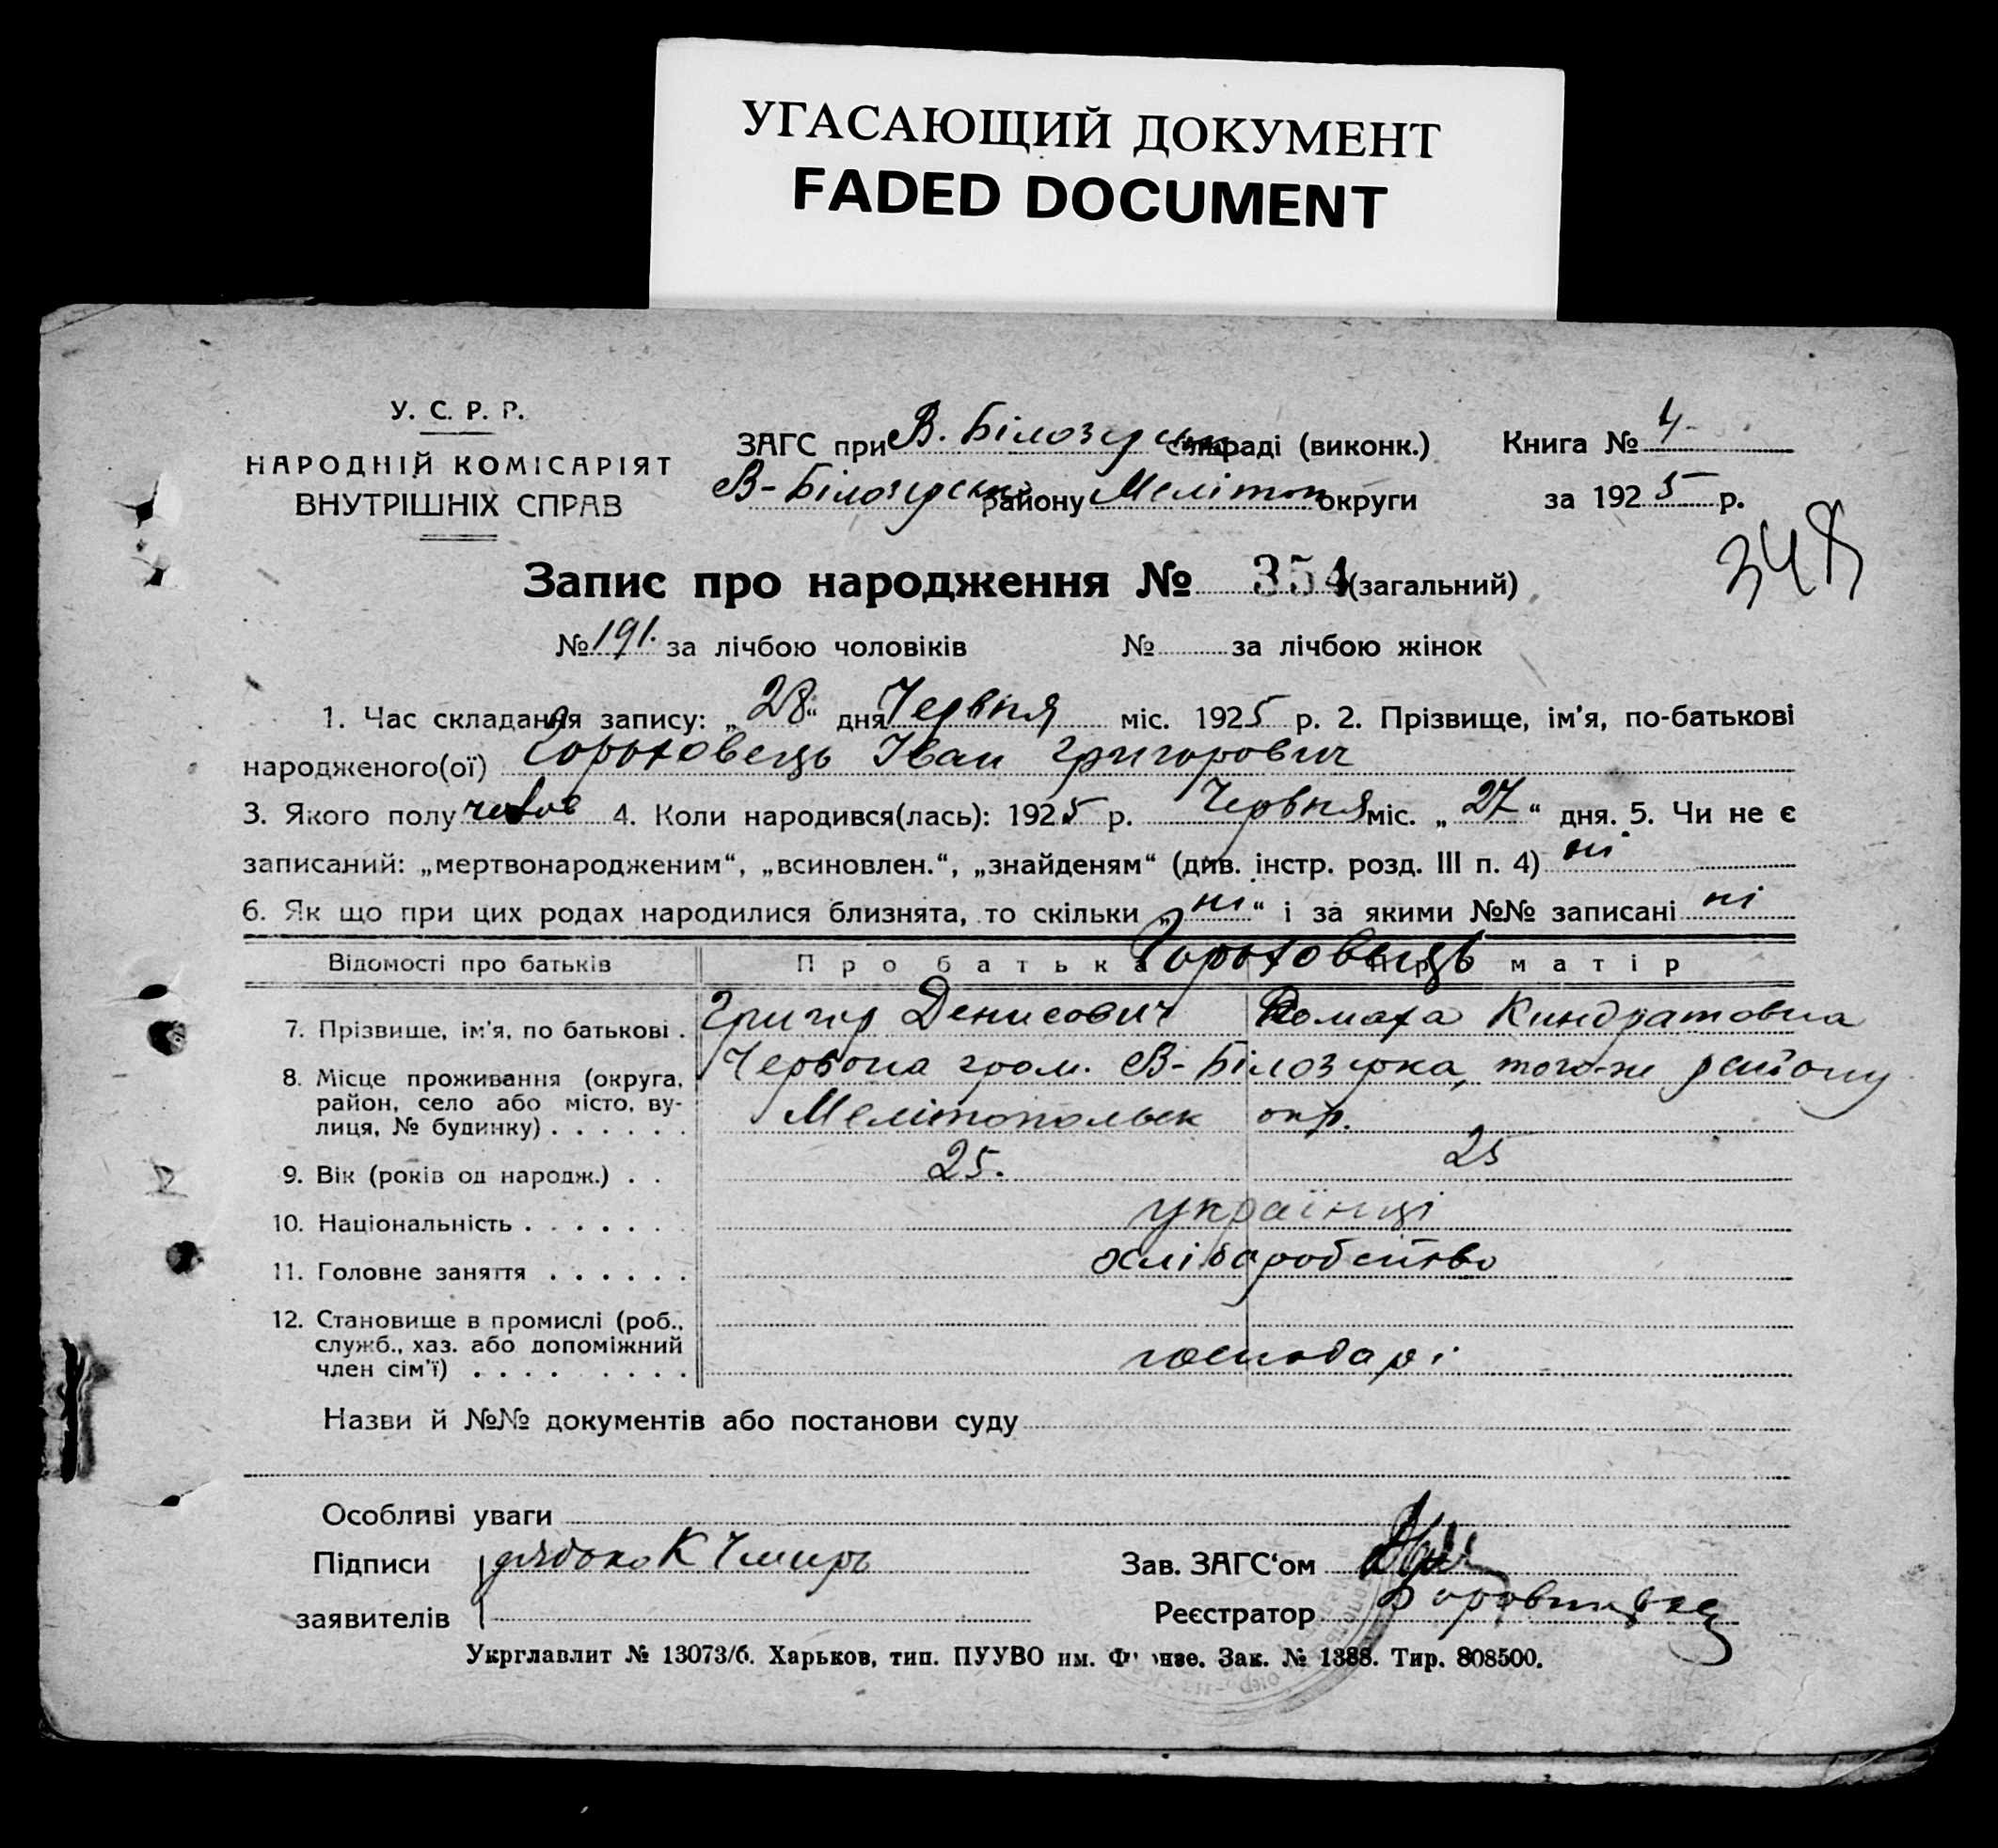 УГАСАЮЩИЙ ДОКУМЕНТ
FADED DOCUMENT
У. С. Р. Р.
НАРОДНІЙ КОМІСАРІЯТ
ВНУТРІШНІХ СПРАВ
ЗАГС при В. Білозерськ сільраді (виконк.) Книга № 4
В-Білозерськ району Меліton округи за 1925 р.
348
Запис про народження № 354 (загальний)
№ 191. за лічбою чоловіків № за лічбою жінок
1. Час складання запису: „28“ дня Червня міс. 1925 р. 2. Прізвище, ім'я, по-батькові
народженого(ої) Гороховець Іван Григорович
3. Якого полу чолов 4. Коли народився(лась): 1925 р. Червня міс. „27“ дня. 5. Чи не є
записаний: „мертвонародженим“, „всиновлен.“, „знайденям“ (див. інстр. розд. III п. 4) ні
6. Як що при цих родах народилися близнята, то скільки „ні“ і за якими №№ записані ні
Відомості про батьків Про батька Гороховець Про матір
7. Прізвище, ім'я, по батькові . Григор Денисович Домаха Киндратовна
8. Місце проживання (округа, район, село або місто, вулиця, № будинку) . . . . . . Червона гром. В-Білозірка, того-же району
Мелітопольск окр.
9. Вік (років од народж.) . . 25. 25
10. Національність . . . . . . українці
11. Головне заняття . . . . . . хліборобство
12. Становище в промислі (роб., служб., хаз. або допоміжний член сім'ї) . . . . . . . . господарі
Назви й №№ документів або постанови суду
Особливі уваги
Підписи К Чмирь Зав. ЗАГС'ом
заявителів Реєстратор
Укрглавлит № 13073/б. Харьков, тип. ПУУВО им. Фрунзе. Зак. № 1388. Тир. 808500.